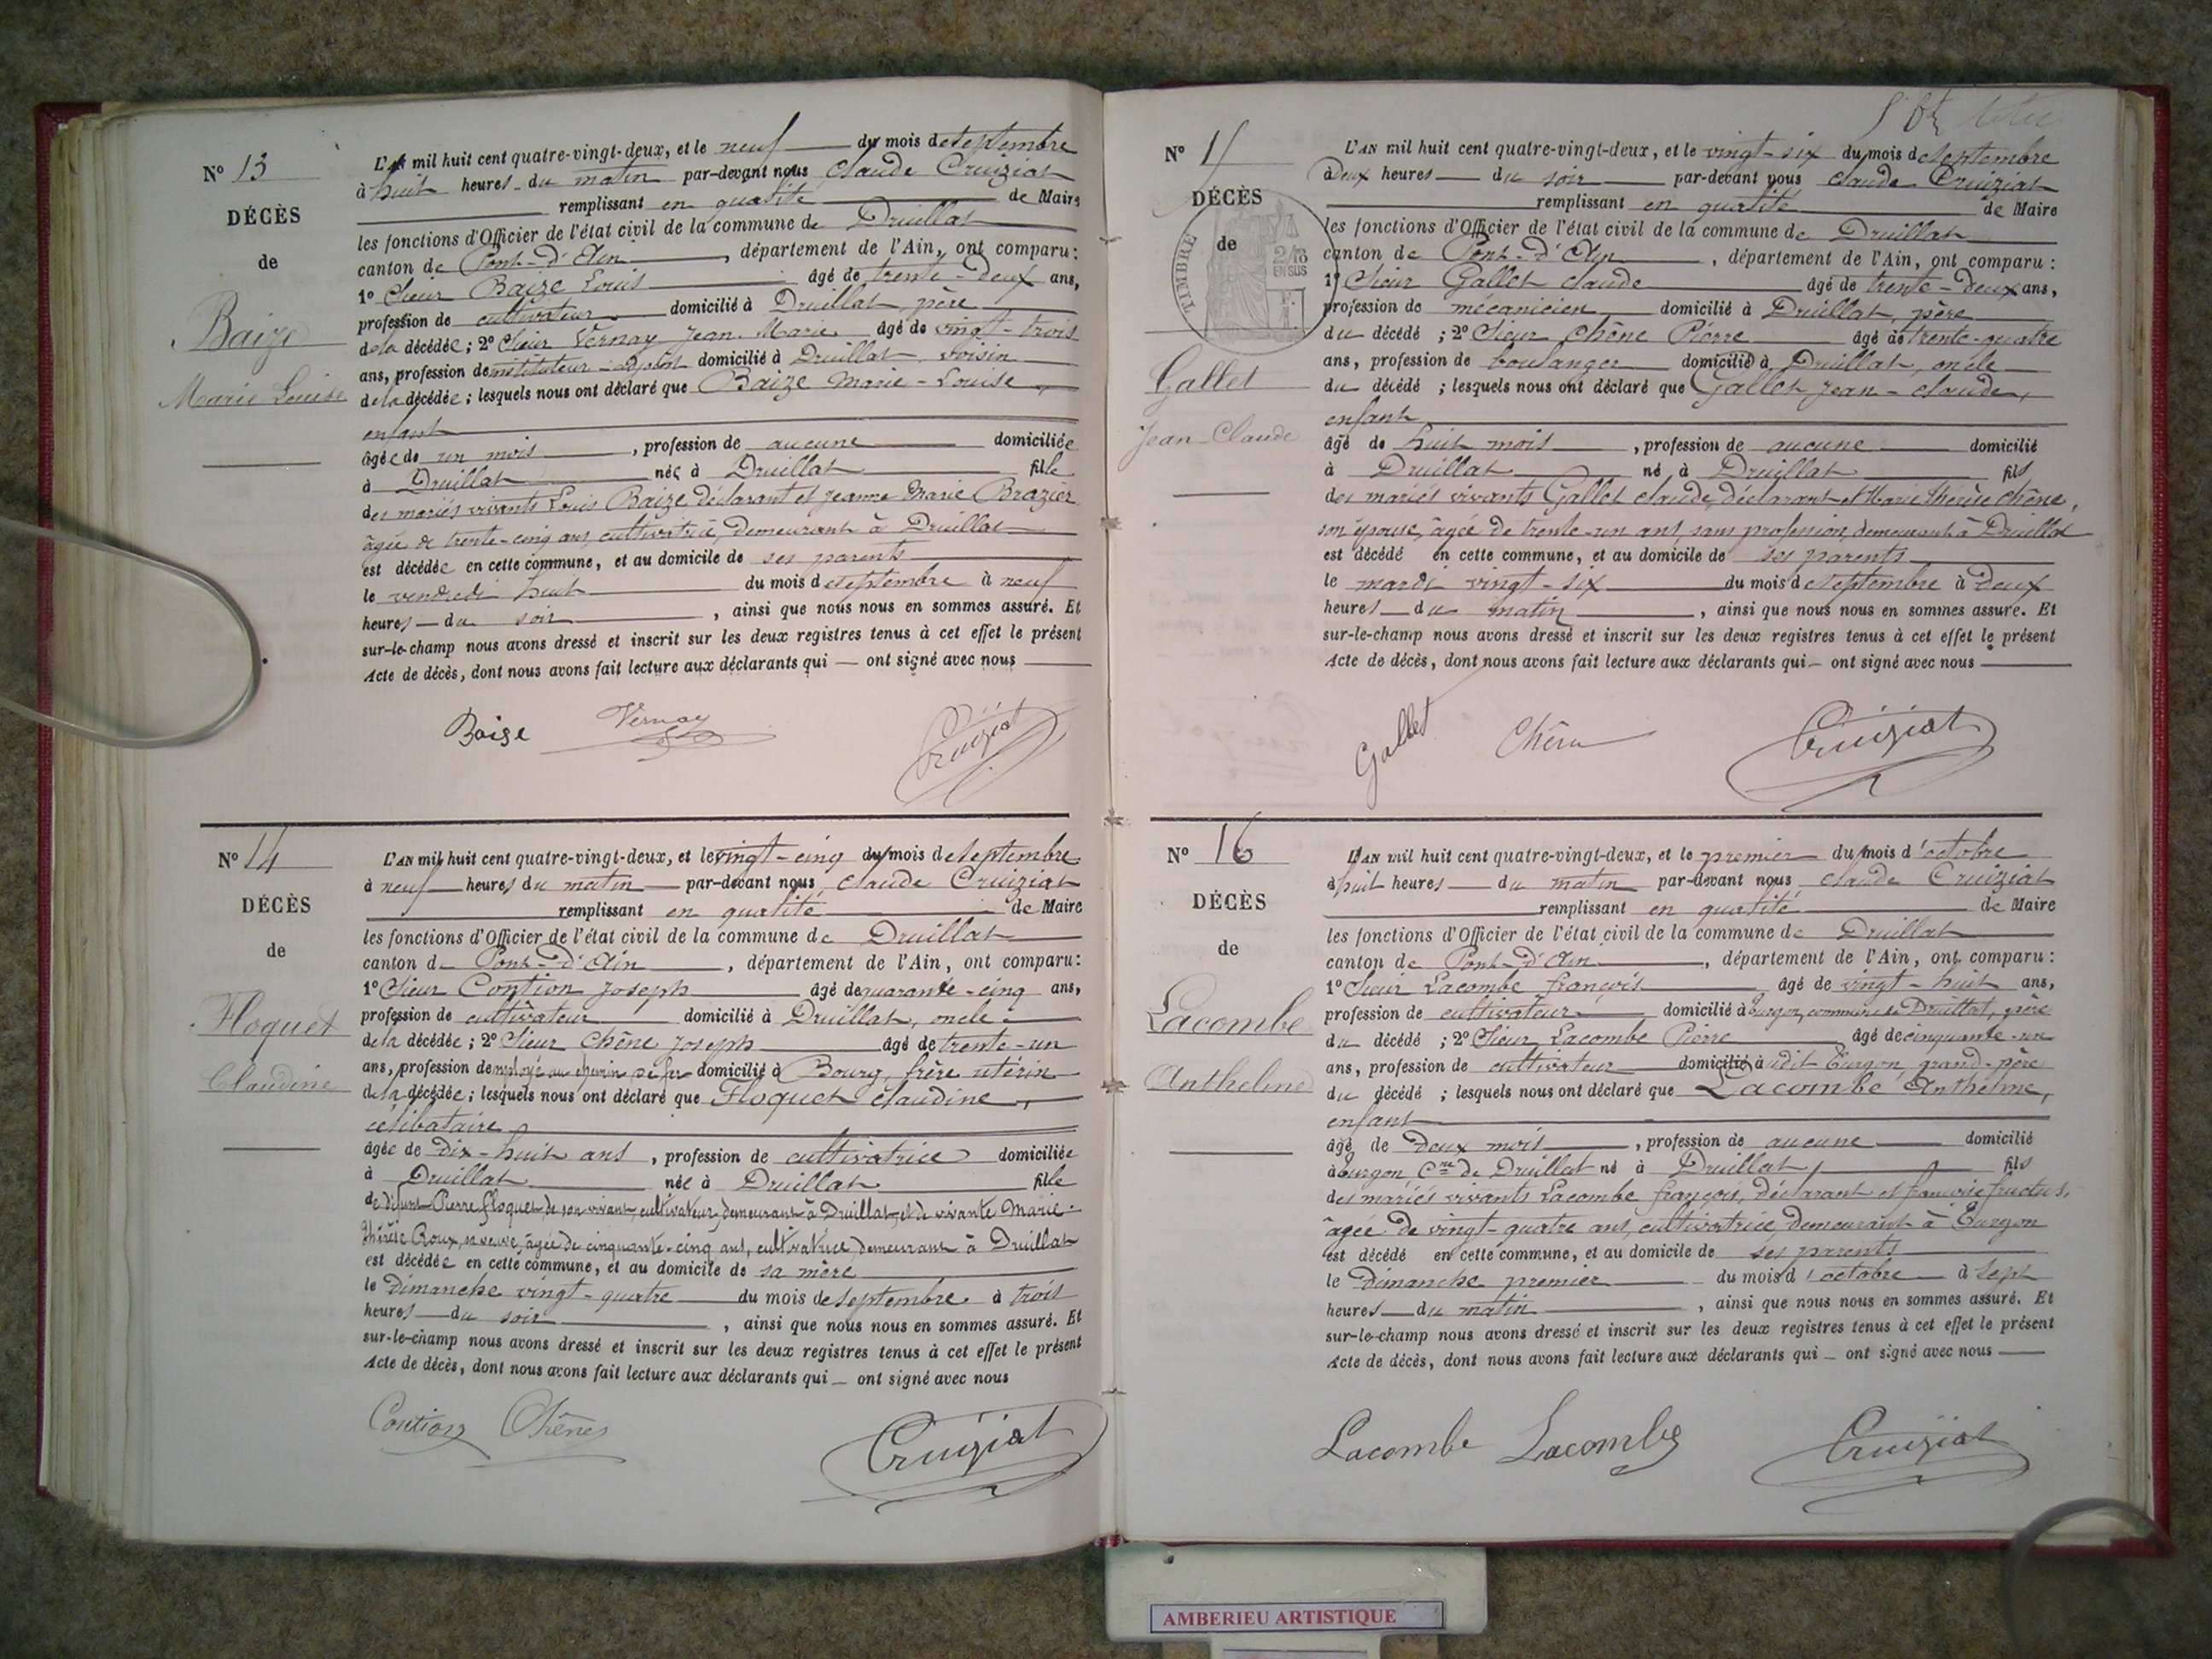 N° 13
DÉCÈS
de
Baize
Marie Louise
L'AN mil huit cent quatre-vingt-deux, et le neuf du mois de septembre
à huit heures du matin par-devant nous Claude Cruiziat
remplissant en qualité de Maire
les fonctions d'Officier de l'état civil de la commune de Druillat
canton de Pont-d'Ain, département de l'Ain, ont comparu:
1° Sieur Baize Louis âgé de trente-deux ans,
profession de cultivateur domicilié à Druillat, père
de la décédée; 2° Sieur Vernay Jean Marie âgé de vingt-trois
ans, profession de instituteur-adjoint domicilié à Druillat, voisin
de la décédée; lesquels nous ont déclaré que Baize Marie-Louise,
enfant
âgée de un mois, profession de aucune domiciliée
à Druillat née à Druillat fille
des mariés vivants Louis Baize déclarant et Jeanne Marie Brazier
âgée de trente-cinq ans, cultivatrice, demeurant à Druillat
est décédée en cette commune, et au domicile de ses parents
le vendredi huit du mois de septembre à neuf
heures du soir, ainsi que nous nous en sommes assuré. Et
sur-le-champ nous avons dressé et inscrit sur les deux registres tenus à cet effet le présent
Acte de décès, dont nous avons fait lecture aux déclarants qui — ont signé avec nous
Baise Vernay Cruiziat
N° 14
DÉCÈS
de
Floquet
Claudine
L'AN mil huit cent quatre-vingt-deux, et le vingt-cinq du mois de septembre
à neuf heures du matin par-devant nous Claude Cruiziat
remplissant en qualité de Maire
les fonctions d'Officier de l'état civil de la commune de Druillat
canton de Pont-d'Ain, département de l'Ain, ont comparu:
1° Sieur Contion Joseph âgé de quarante-cinq ans,
profession de cultivateur domicilié à Druillat, oncle
de la décédée; 2° Sieur Chêne Joseph âgé de trente-un
ans, profession de employé au chemin de fer domicilié à Bourg, frère utérin
de la décédée; lesquels nous ont déclaré que Floquet Claudine,
célibataire
âgée de dix-huit ans, profession de cultivatrice domiciliée
à Druillat née à Druillat fille
de défunt Pierre Floquet, de son vivant, cultivateur, demeurant à Druillat, et de vivante Marie-
Thérèse Roux, sa veuve, âgée de cinquante-cinq ans, cultivatrice demeurant à Druillat
est décédée en cette commune, et au domicile de sa mère
le dimanche vingt-quatre du mois de septembre à trois
heures du soir, ainsi que nous nous en sommes assuré. Et
sur-le-champ nous avons dressé et inscrit sur les deux registres tenus à cet effet le présent
Acte de décès, dont nous avons fait lecture aux déclarants qui — ont signé avec nous
Contion Chênes Cruiziat
N° 15
DÉCÈS
de
TIMBRE
2/10
EN SUS
Gallet
Jean-Claude
L'AN mil huit cent quatre-vingt-deux, et le vingt-six du mois de septembre
à deux heures du soir par-devant nous Claude Cruiziat
remplissant en qualité de Maire
les fonctions d'Officier de l'état civil de la commune de Druillat
canton de Pont-d'Ain, département de l'Ain, ont comparu:
1° Sieur Gallet Claude âgé de trente-deux ans,
profession de mécanicien domicilié à Druillat, père
du décédé; 2° Sieur Chêne Pierre âgé de trente-quatre
ans, profession de boulanger domicilié à Druillat, oncle
du décédé; lesquels nous ont déclaré que Gallet Jean-Claude,
enfant
âgé de huit mois, profession de aucune domicilié
à Druillat né à Druillat fils
des mariés vivants Gallet Claude, déclarant et Marie Thérèse Chêne,
son épouse, âgée de trente-un ans, sans profession, demeurant à Druillat
est décédé en cette commune, et au domicile de ses parents
le mardi vingt-six du mois de septembre à deux
heures du matin, ainsi que nous nous en sommes assuré. Et
sur-le-champ nous avons dressé et inscrit sur les deux registres tenus à cet effet le présent
Acte de décès, dont nous avons fait lecture aux déclarants qui — ont signé avec nous
Gallet Chêne Cruiziat
N° 16
DÉCÈS
de
Lacombe
Anthelme
L'AN mil huit cent quatre-vingt-deux, et le premier du mois d'octobre
à huit heures du matin par-devant nous Claude Cruiziat
remplissant en qualité de Maire
les fonctions d'Officier de l'état civil de la commune de Druillat
canton de Pont-d'Ain, département de l'Ain, ont comparu:
1° Sieur Lacombe François âgé de vingt-huit ans,
profession de cultivateur domicilié à Turgon, commune de Druillat, père
du décédé; 2° Sieur Lacombe Pierre âgé de cinquante-un
ans, profession de cultivateur domicilié à dit Turgon, grand-père
du décédé; lesquels nous ont déclaré que Lacombe Anthelme,
enfant
âgé de deux mois, profession de aucune domicilié
à Turgon, Cne de Druillat né à Druillat, fils
des mariés vivants Lacombe François, déclarant et
âgée de vingt-quatre ans, cultivatrice, demeurant à Turgon
est décédé en cette commune, et au domicile de ses parents
le dimanche premier du mois d'octobre à sept
heures du matin, ainsi que nous nous en sommes assuré. Et
sur-le-champ nous avons dressé et inscrit sur les deux registres tenus à cet effet le présent
Acte de décès, dont nous avons fait lecture aux déclarants qui — ont signé avec nous
Lacombe Lacombe Cruiziat
AMBERIEU ARTISTIQUE